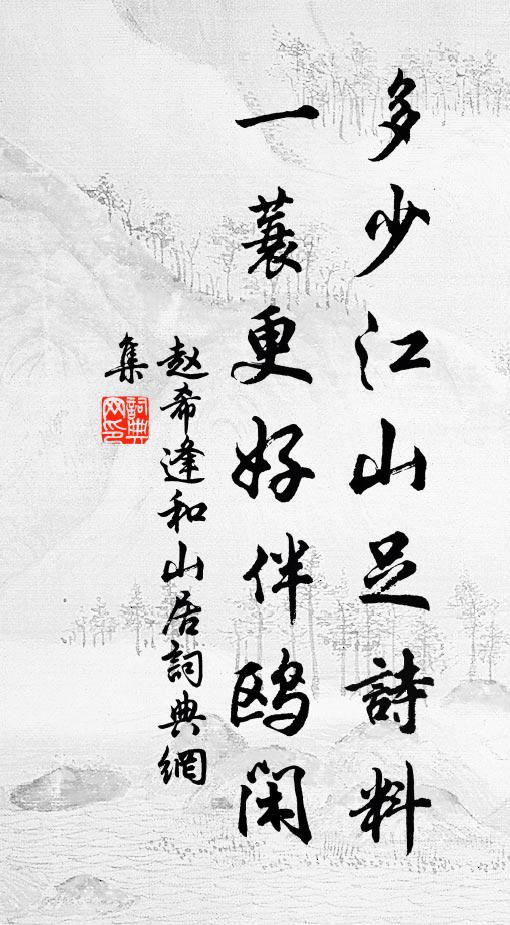 多少江山足詩料
一蓑更好伴鸥闲
赵希逢和山居詞典網
集
詞典
网印